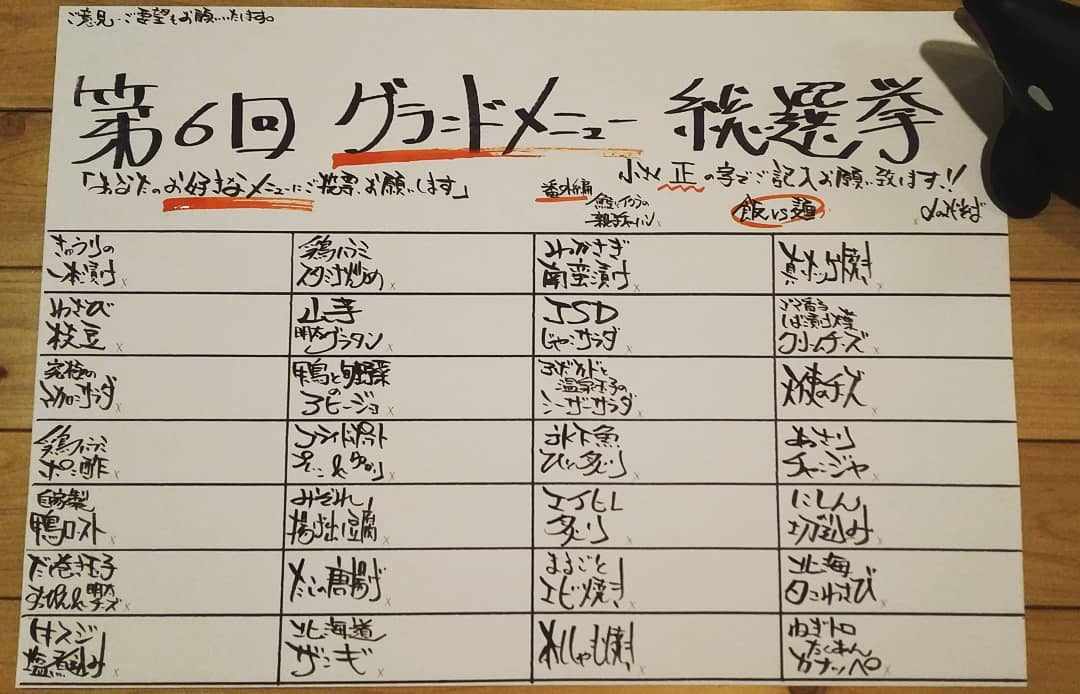 ご意見・ご要望もお願いいたします。
第6回 グランドメニュー 総選挙
「あなたのお好きなメニューにご投票、お願いします」
小さく正の字でご記入お願い致します!!
番外編
鮭とイクラの
親子チャーハン
飯vs麺
〆のそば
きゅうりの
一本漬け
鶏ハラミ
スタミナ炒め
わかさぎ
南蛮漬け
真ホッケ焼き
わさび
枝豆
山芋
明太グラタン
JSD
じゃこサラダ
ゴマ香る
しば漬け
クリームチーズ
究極の
マカロニサラダ
鴨と旬野菜
の
アヒージョ
アボカドと
温泉玉子の
シーザーサラダ
チーズ
鶏ハラミ
ポン酢
フライドポテト
氷下魚
炙り
あさり
チャンジャ
自家製
鴨ロースト
みぞれ
揚げ出し豆腐
エイヒレ
炙り
にしん
切り込み
だし巻き玉子
明太
チーズ
たこの唐揚げ
まるごと
エビ焼き
北海
タコわさび
牛スジ
塩煮込み
北海道
ザンギ
本ししゃも焼き
ねぎトロ
たくあん
カナッペ